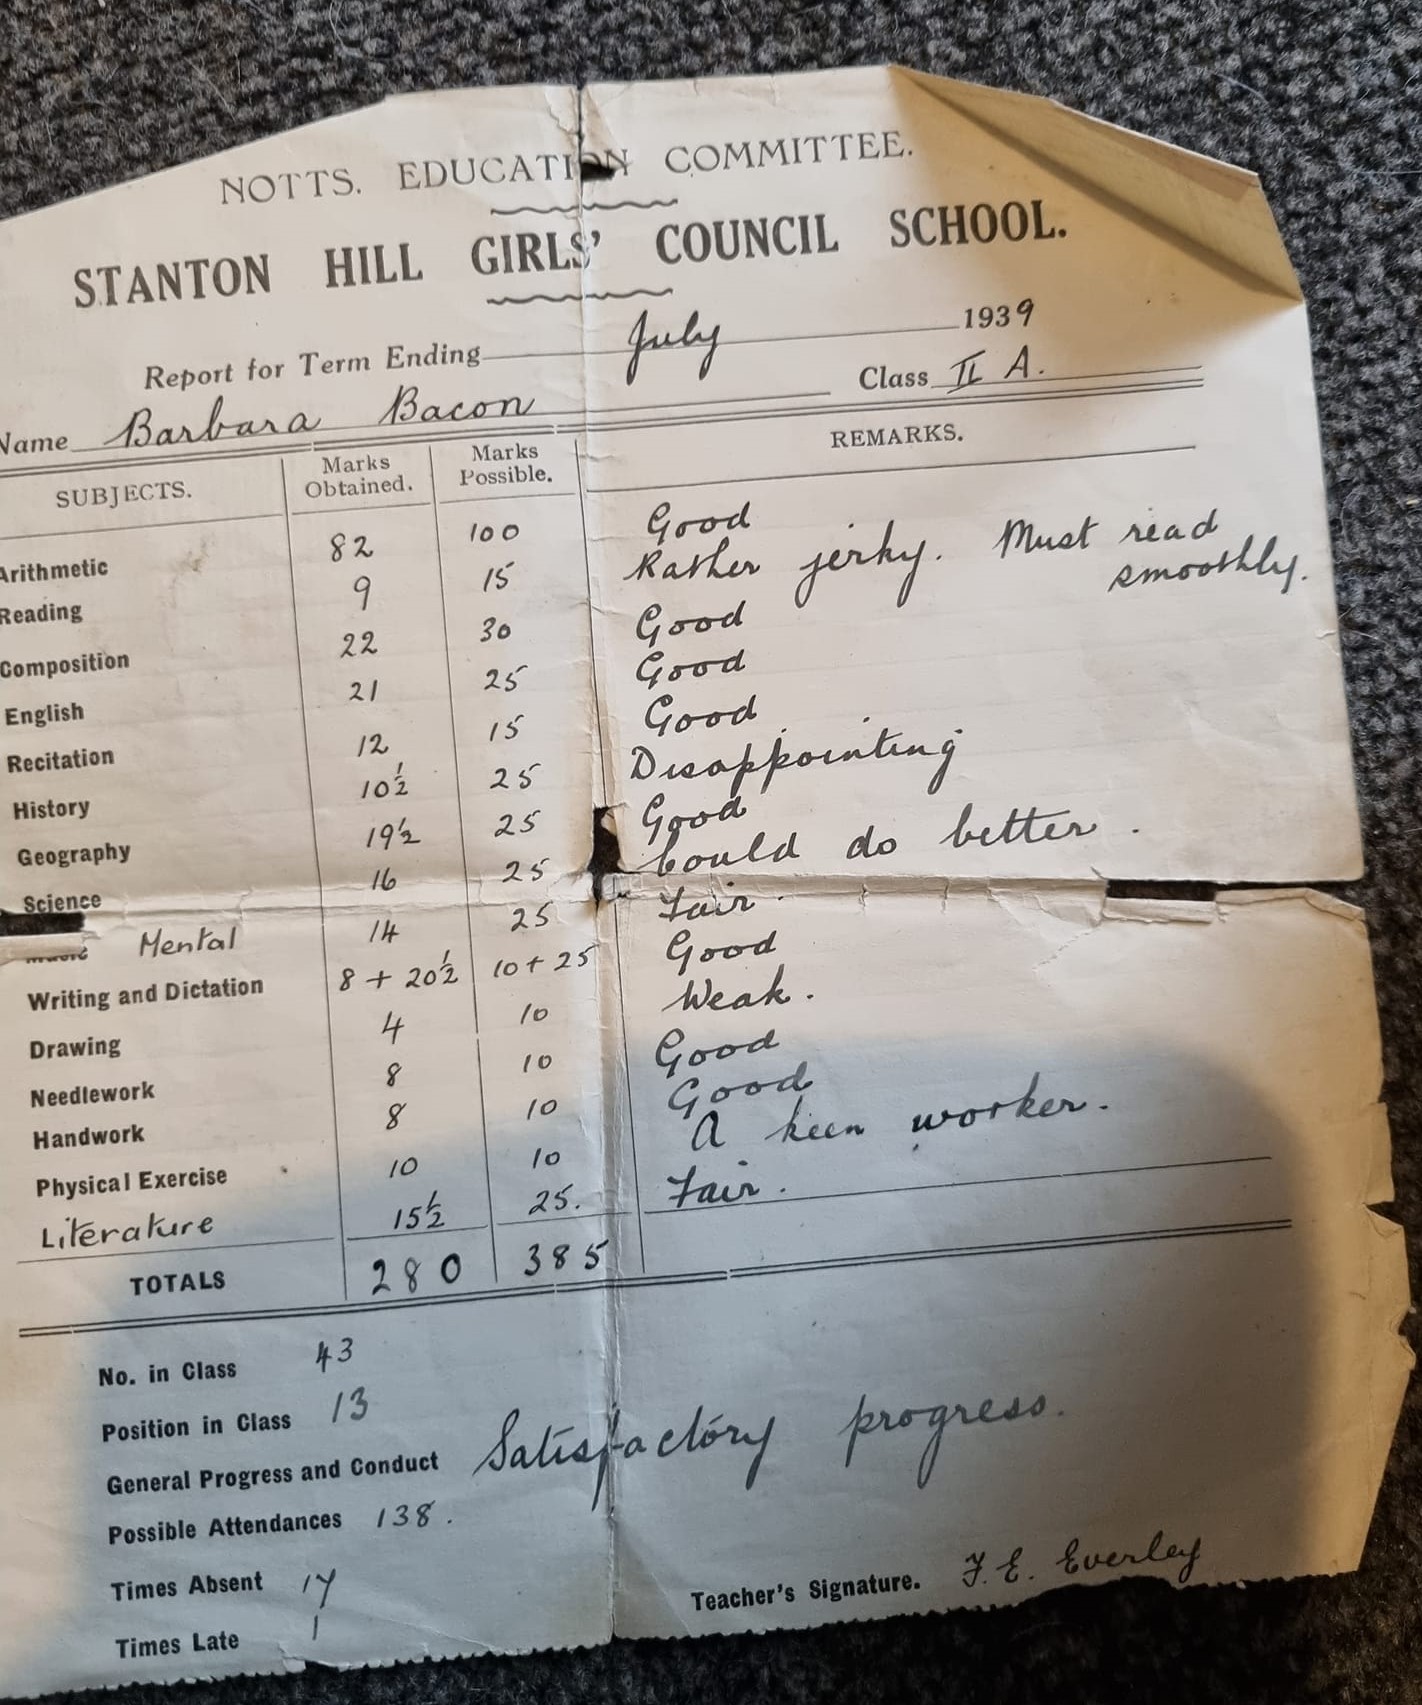 NOTTS. EDUCATION COMMITTEE.
STANTON HILL GIRLS' COUNCIL SCHOOL.
Report for Term Ending July 1939
Name Barbara Bacon Class II A.
SUBJECTS. Marks Obtained. Marks Possible. REMARKS.
Arithmetic 82 100 Good
Reading 9 15 Rather jerky. Must read smoothly.
Composition 22 30 Good
English 21 25 Good
Recitation 12 15 Good
History 10½ 25 Disappointing
Geography 19½ 25 Good
Science 16 25 Could do better.
Music Mental 14 25 Fair.
Writing and Dictation 8 + 20½ 10 + 25 Good
Drawing 4 10 Weak.
Needlework 8 10 Good
Handwork 8 10 Good
Physical Exercise 10 10 A keen worker.
Literature 15½ 25. Fair.
TOTALS 280 385
No. in Class 43
Position in Class 13
General Progress and Conduct Satisfactory progress.
Possible Attendances 138.
Times Absent 17
Times Late 1
Teacher's Signature. F. E. Everley